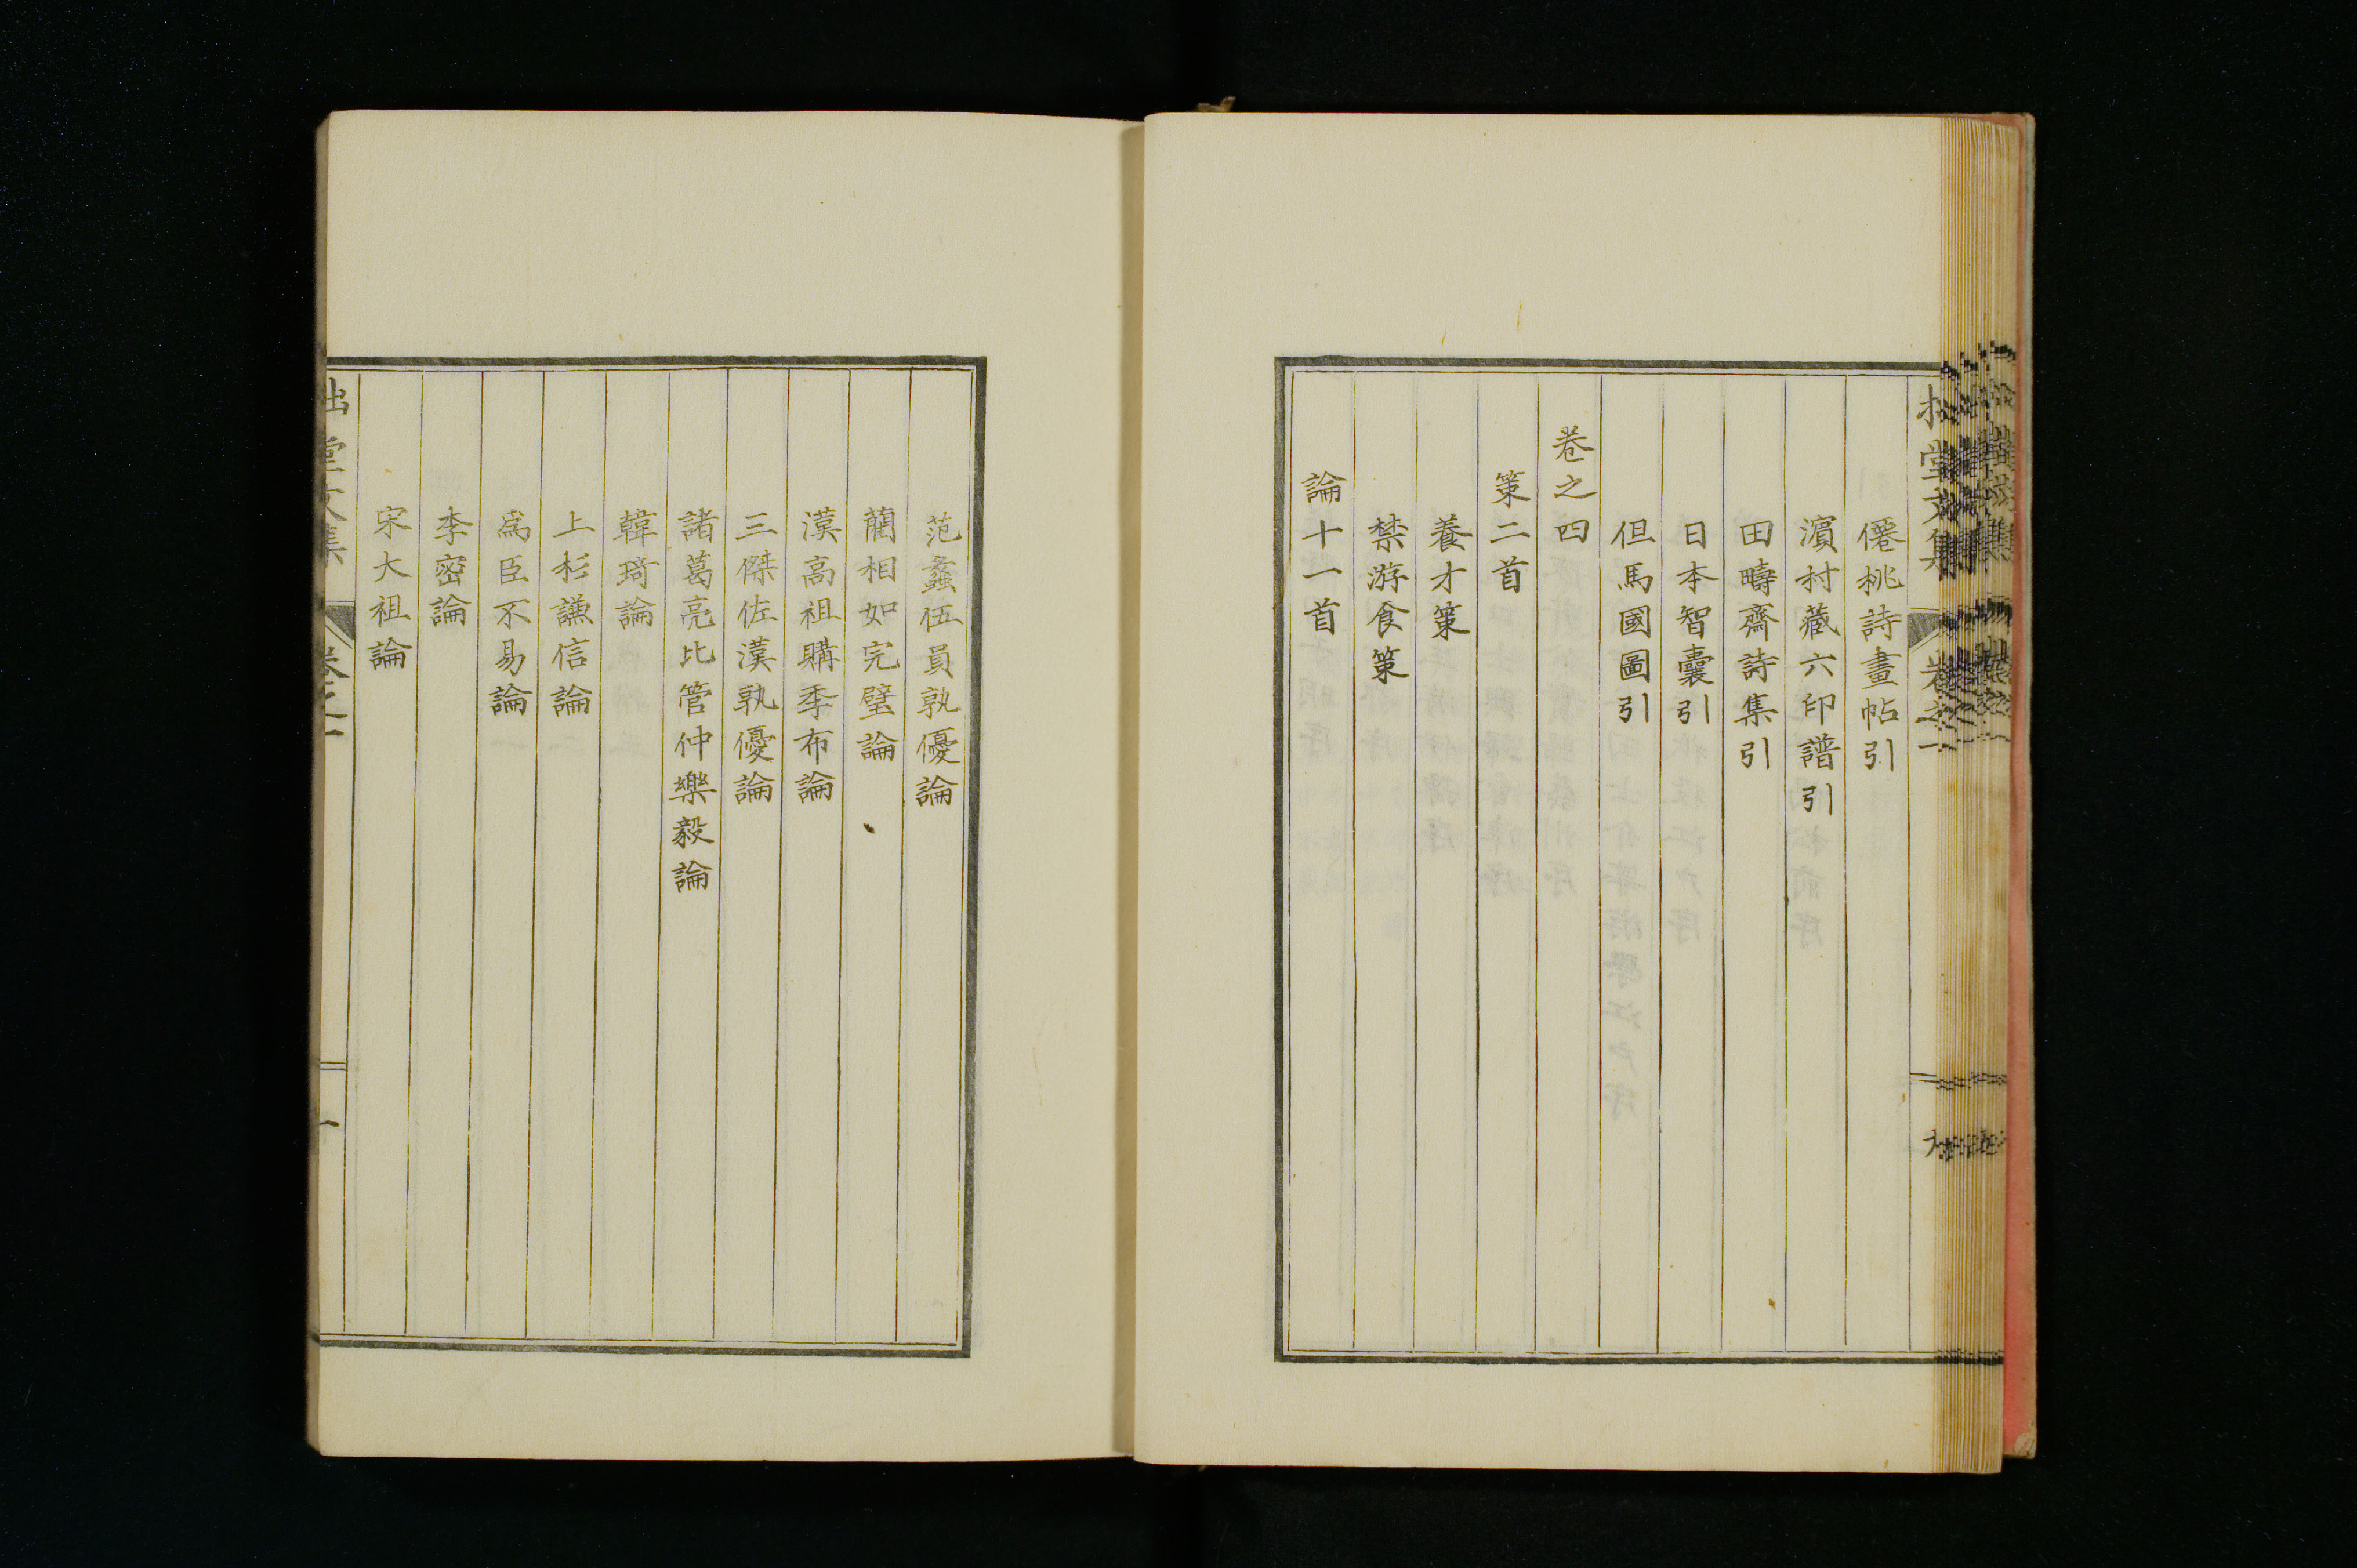 僊桃詩畫帖引
濵村藏六印譜引
田疇齋詩集引
日本智囊引
但馬國圖引
卷之四
策二首
養才策
禁游食策
論十一首
范蠡伍員孰優論
藺相如完璧論
漢高祖購季布論
三傑佐漢孰優論
諸葛亮比管仲樂毅論
韓琦論
上杉謙信論
爲臣不易論
李密論
宋大祖論
拙堂文集
卷之一